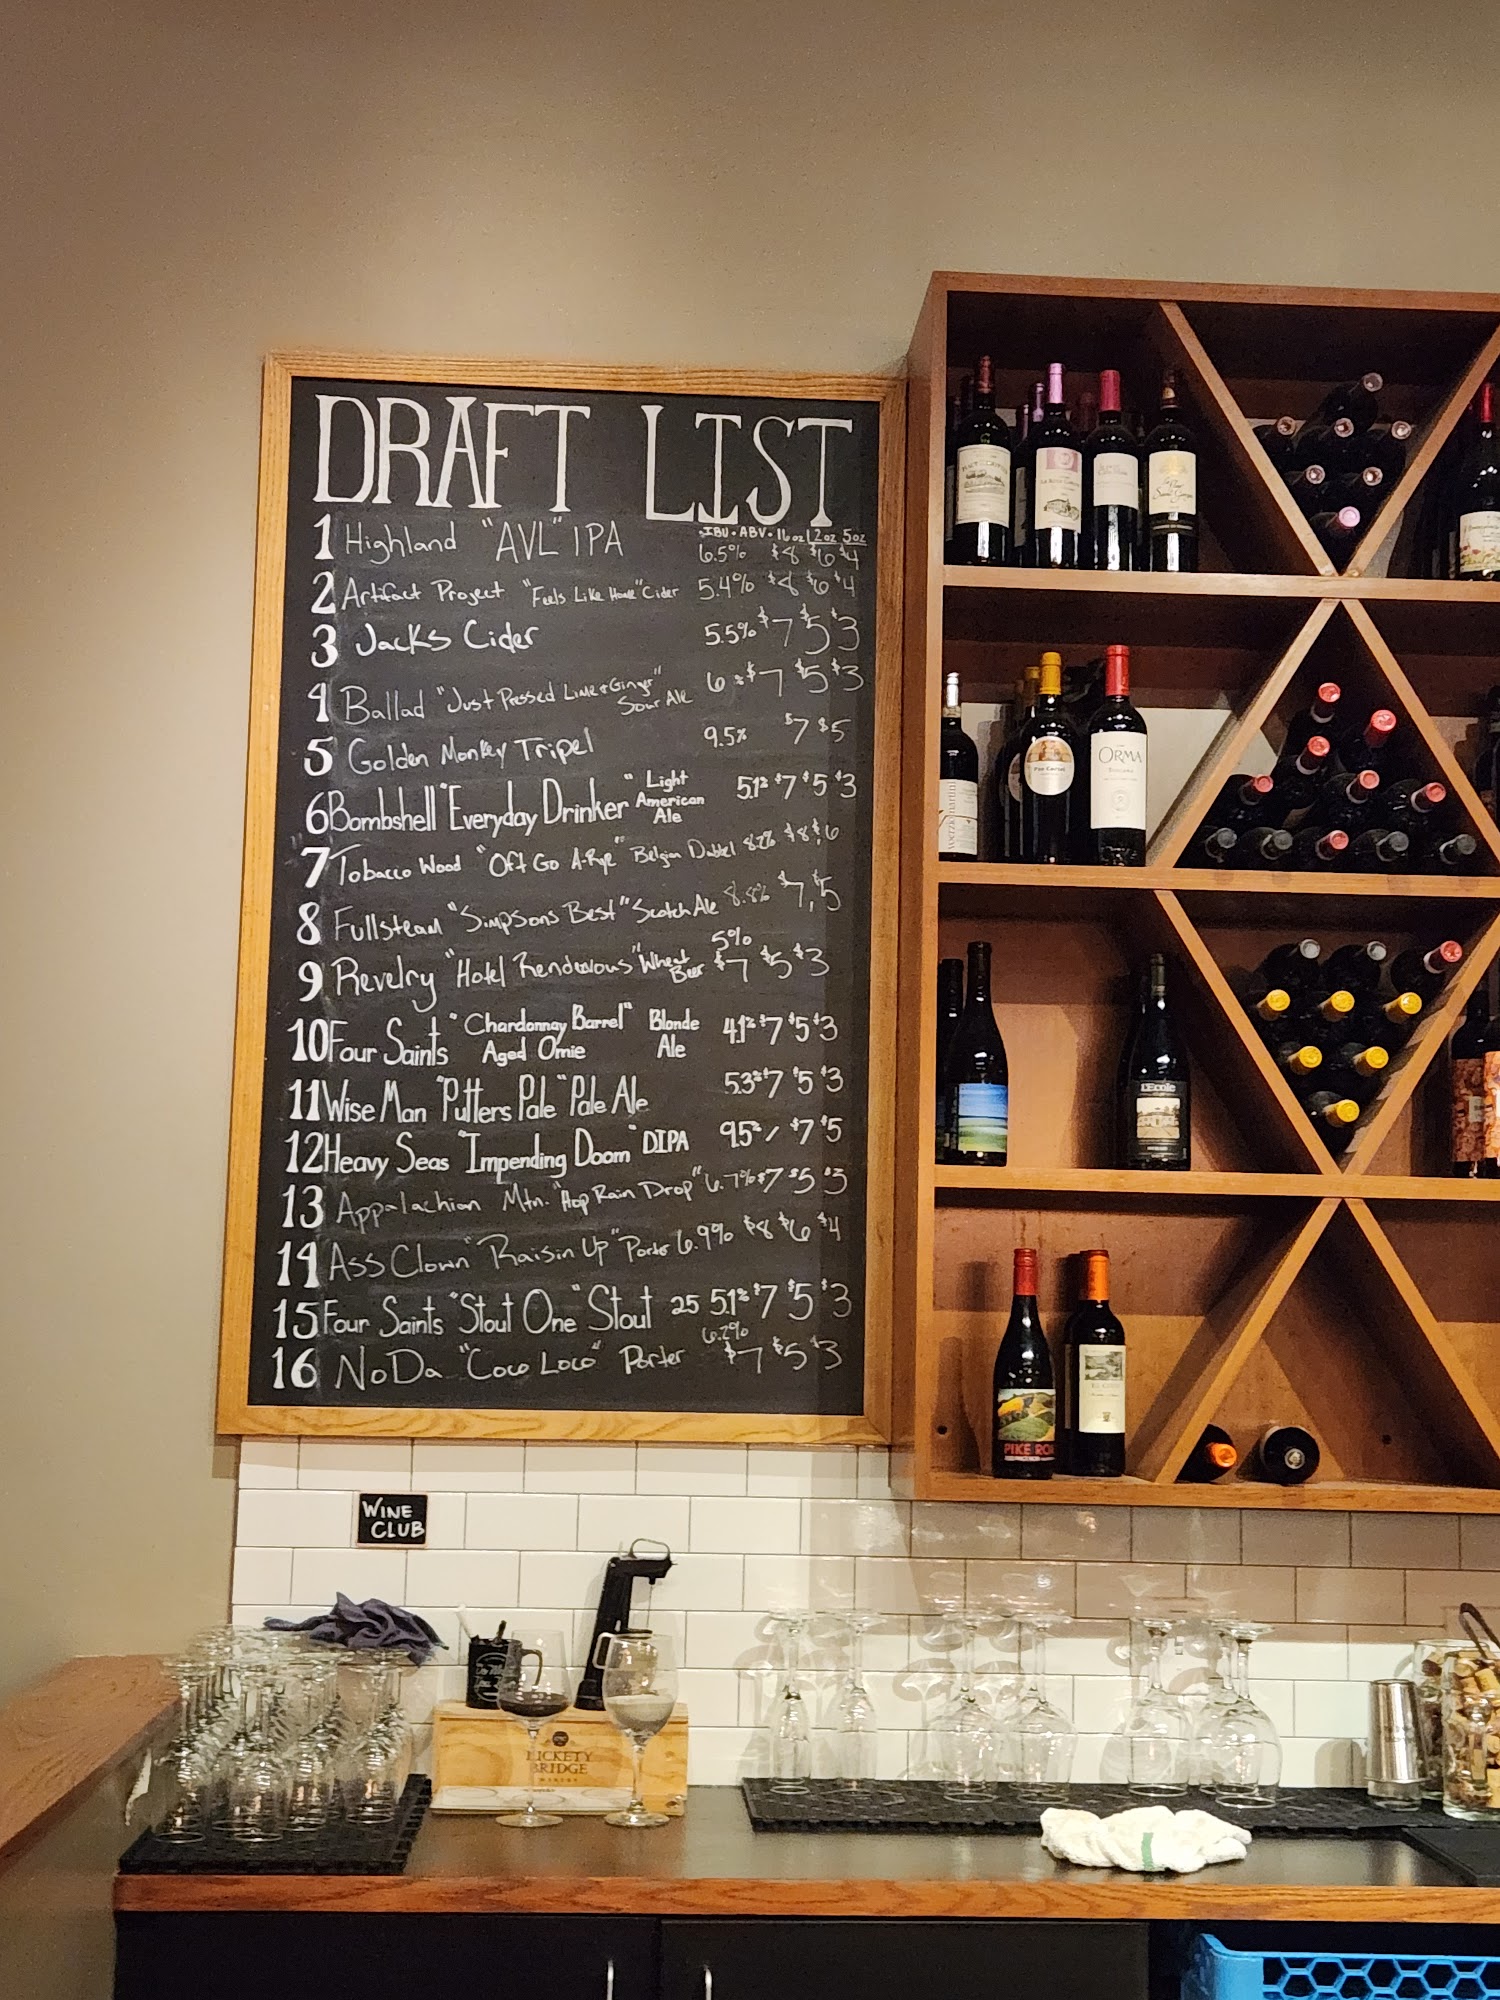 DRAFT LIST
IBU · ABV · 16oz 12oz 5oz
1 Highland "AVL" IPA 6.5% $8 $6 $4
2 Artifact Project "Feels Like Home" Cider 5.4% $8 $6 $4
3 Jacks Cider 5.5% $7 $5 $3
4 Ballad "Just Pressed Lime & Ginger" 6% $7 $5 $3
Sour Ale
5 Golden Monkey Tripel 9.5% $7 $5
6 Bombshell "Everyday Drinker" Light American Ale 5.1% $7 $5 $3
7 Tobacco Wood "Oft Go A-Rye" Belgian Dubbel 8.2% $8 $6
8 Fullsteam "Simpsons Best" Scotch Ale 8.8% $7, $5
9 Revelry "Hotel Rendezvous" Wheat Beer 5% $7 $5 $3
10 Four Saints "Chardonnay Barrel" Blonde 4.1% $7 $5 $3
Aged Omie Ale
11 Wise Man "Putters Pale" Pale Ale 5.3% $7 $5 $3
12 Heavy Seas "Impending Doom" DIPA 9.5% / $7 $5
13 Appalachian Mtn. "Hop Rain Drop" 6.7% $7 $5 $3
14 Ass Clown "Raisin Up" Porter 6.9% $8 $6 $4
15 Four Saints "Stout One" Stout 25 5.1% $7 $5 $3
16 NoDa "Coco Loco" Porter 6.2% $7 $5 $3
ORMA
L'Ecole
PIKE ROAD
WINE
CLUB
RICKETY
BRIDGE
WINERY